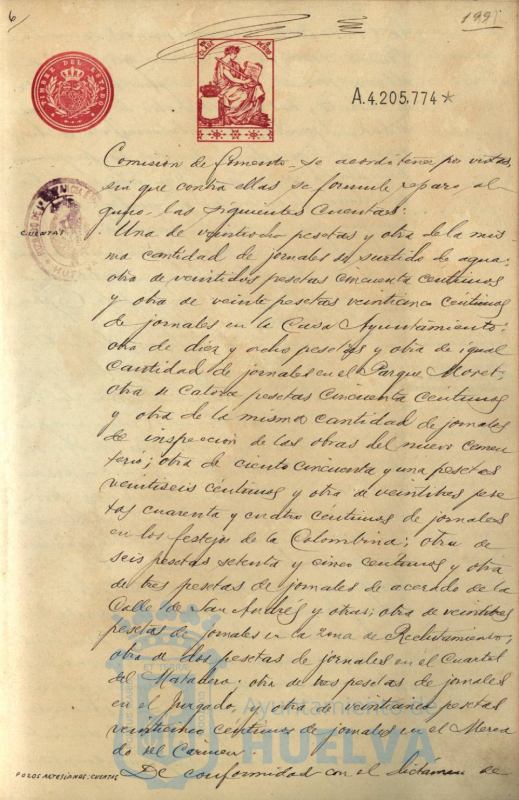 6/
199
TIMBRE DEL ESTADO
CLASE
A.4.205,774*
Comisión de fomento, se acordó tener por vistas,
sin que contra ellas se formule reparo al
guno, las siguientes Cuentas:
CUENTAS
Una de veintiocho pesetas y otra de la mis
ma cantidad de jornales del surtido de agua;
otra de veintidos pesetas cincuenta centimos
y otra de veinte pesetas veinticinco centimos
de jornales en la Casa Ayuntamiento;
otra de diez y ocho pesetas y otra de igual
cantidad de jornales en el Parque Moret;
otra de catorce pesetas cincuenta centimos
y otra de la misma cantidad de jornales
de inspección de las obras del nuevo cemen
terio; otra de ciento cincuenta y una pesetas
veintiseis céntimos y otra de veintitres pese
tas cuarenta y cuatro céntimos de jornales
en los festejos de la Colombina; otra de
seis pesetas setenta y cinco centimos y otra
de tres pesetas de jornales de acerado de la
Calle de San Andrés y otras; otra de veintitres
pesetas de jornales en la zona de Reclutamiento;
otra de dos pesetas de jornales en el Cuartel
del Matadero; otra de tres pesetas de jornales
en el Juzgado, y otra de veinticinco pesetas
veinticinco céntimos de jornales en el Merca
do del Carmen.
Ayuntamiento
HUELVA
POZOS ARTESIANOS. CUENTAS
De conformidad con el dictámen de